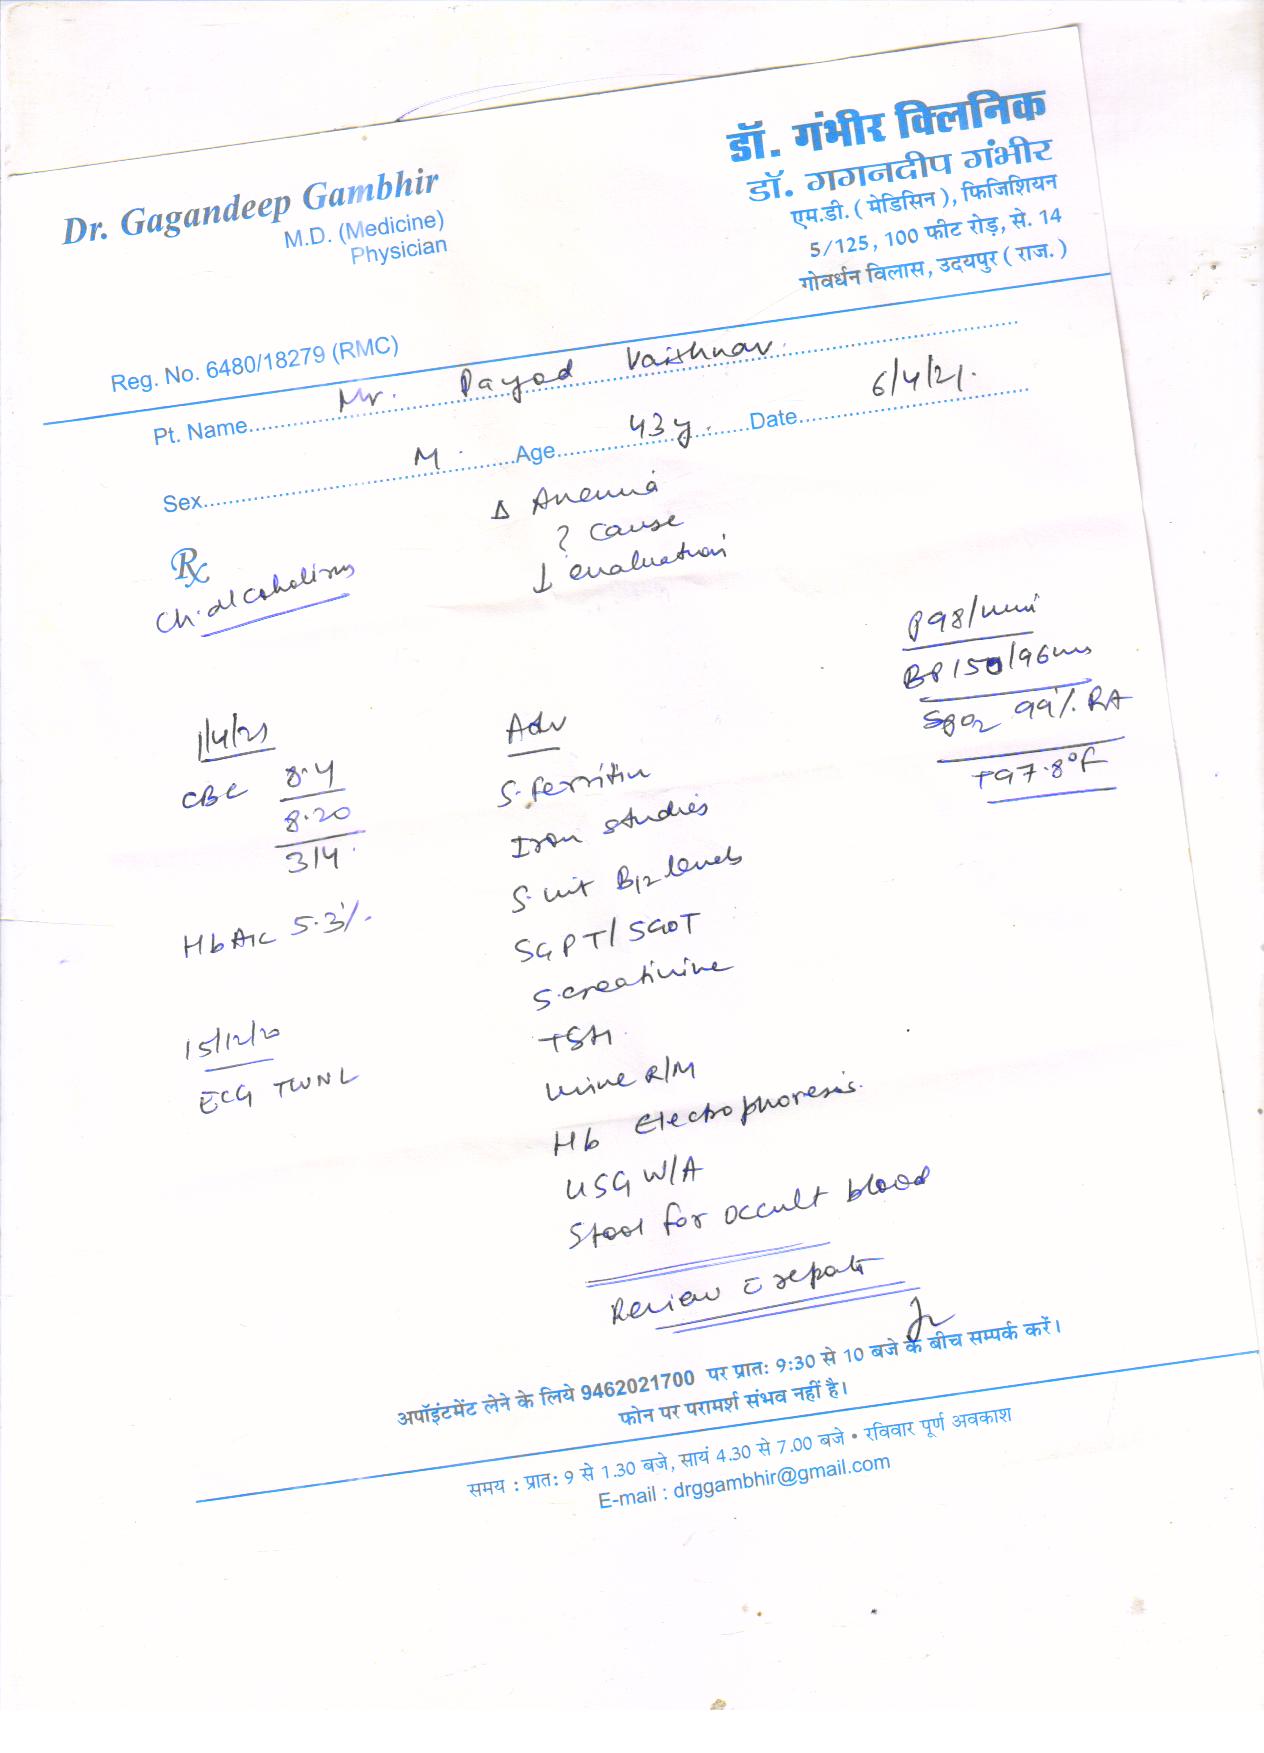 Dr. Gagandeep Gambhir
M.D. (Medicine)
Physician
Reg. No. 6480/18279 (RMC)
डॉ. गंभीर क्लिनिक
डॉ. गगनदीप गंभीर
एम.डी. ( मेडिसिन ), फिजिशियन
5/125, 100 फीट रोड़, से. 14
गोवर्धन विलास, उदयपुर ( राज. )
Pt. Name Mr. Payod Vaishnav
Sex M. Age 43y. Date 6/4/21.
Δ Anemia
? cause
↓ evaluation
Rx
Ch. alcoholism
P 98/min
BP 150/96
SpO2 99% RA
T 97.8°F
1/4/21
CBC 8.4
8.20
314
HbA1c 5.3%
15/12/20
ECG TWNL
Adv
S. ferritin
Iron studies
S. vit B12 levels
SGPT/SGOT
S. creatinine
TSH
Urine R/M
Hb Electrophoresis
USG W/A
Stool for occult blood
Review c̄ reports
अपॉइंटमेंट लेने के लिये 9462021700 पर प्रातः 9:30 से 10 बजे के बीच सम्पर्क करें।
फोन पर परामर्श संभव नहीं है।
समय : प्रातः 9 से 1.30 बजे, सायं 4.30 से 7.00 बजे • रविवार पूर्ण अवकाश
E-mail : drggambhir@gmail.com